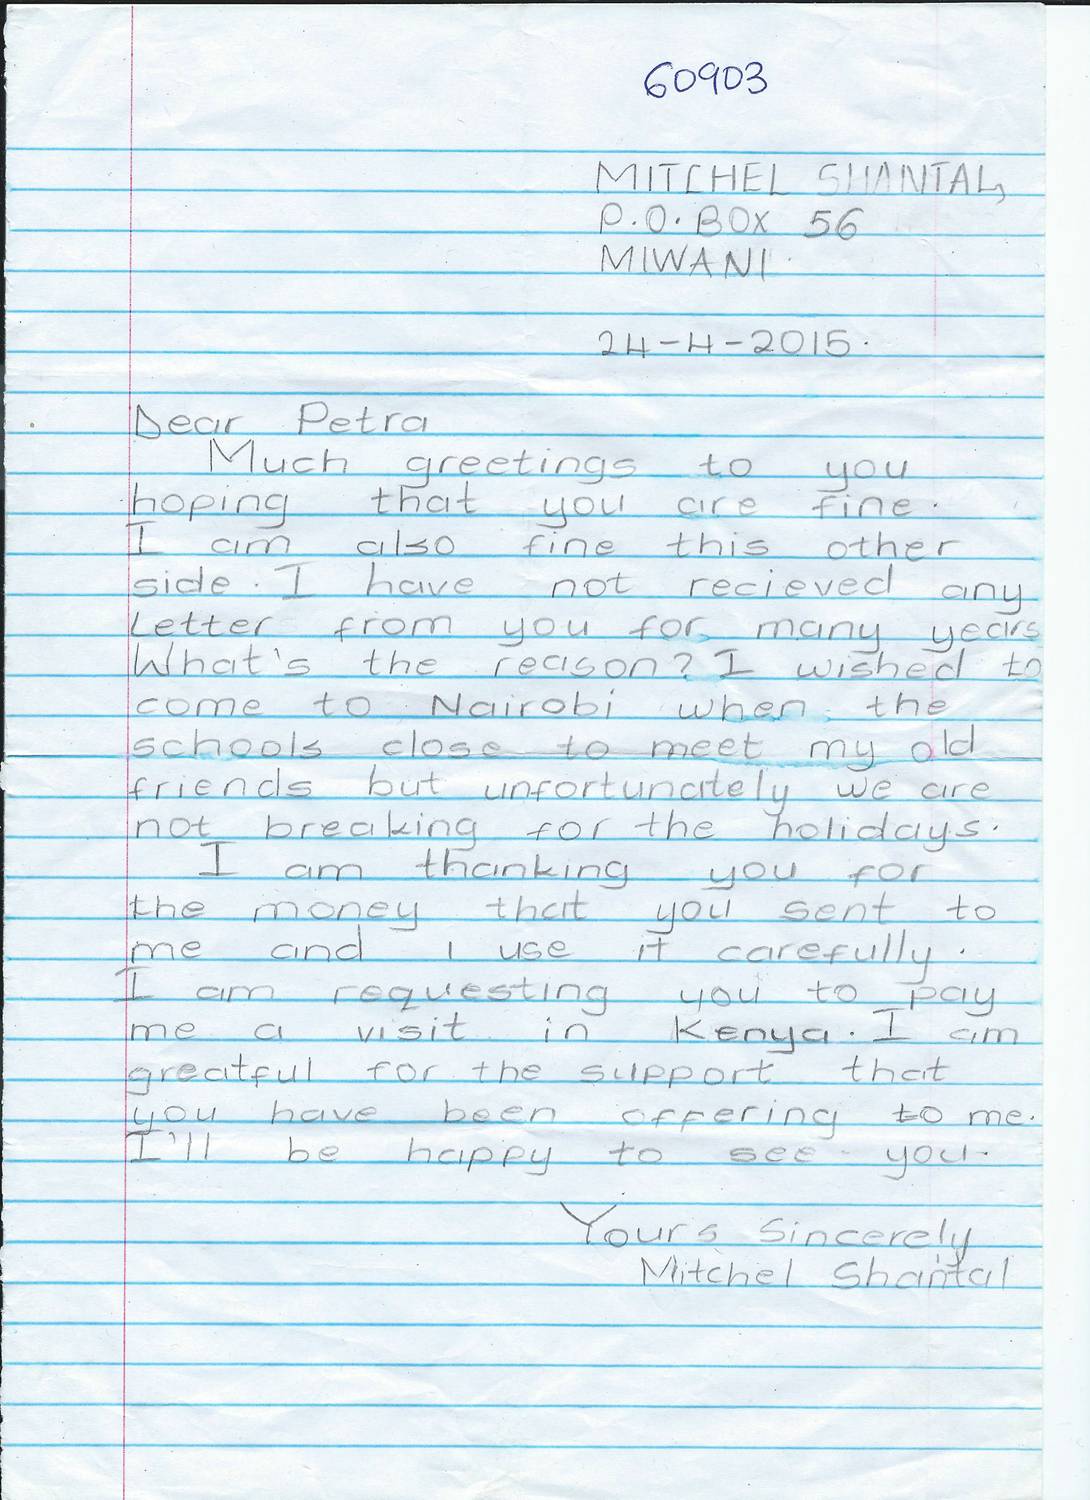 60903
MITCHEL SHANTAL,
P.O. BOX 56
MIWANI.
24-4-2015.
Dear Petra
Much greetings to you
hoping that you are fine.
I am also fine this other
side. I have not recieved any
Letter from you for many years
What's the reason? I wished to
come to Nairobi when the
schools close to meet my old
friends but unfortunately we are
not breaking for the holidays.
I am thanking you for
the money that you sent to
me and I use it carefully.
I am requesting you to pay
me a visit in Kenya. I am
greatful for the support that
you have been offering to me.
I'll be happy to see you.
Yours Sincerely
Mitchel Shantal